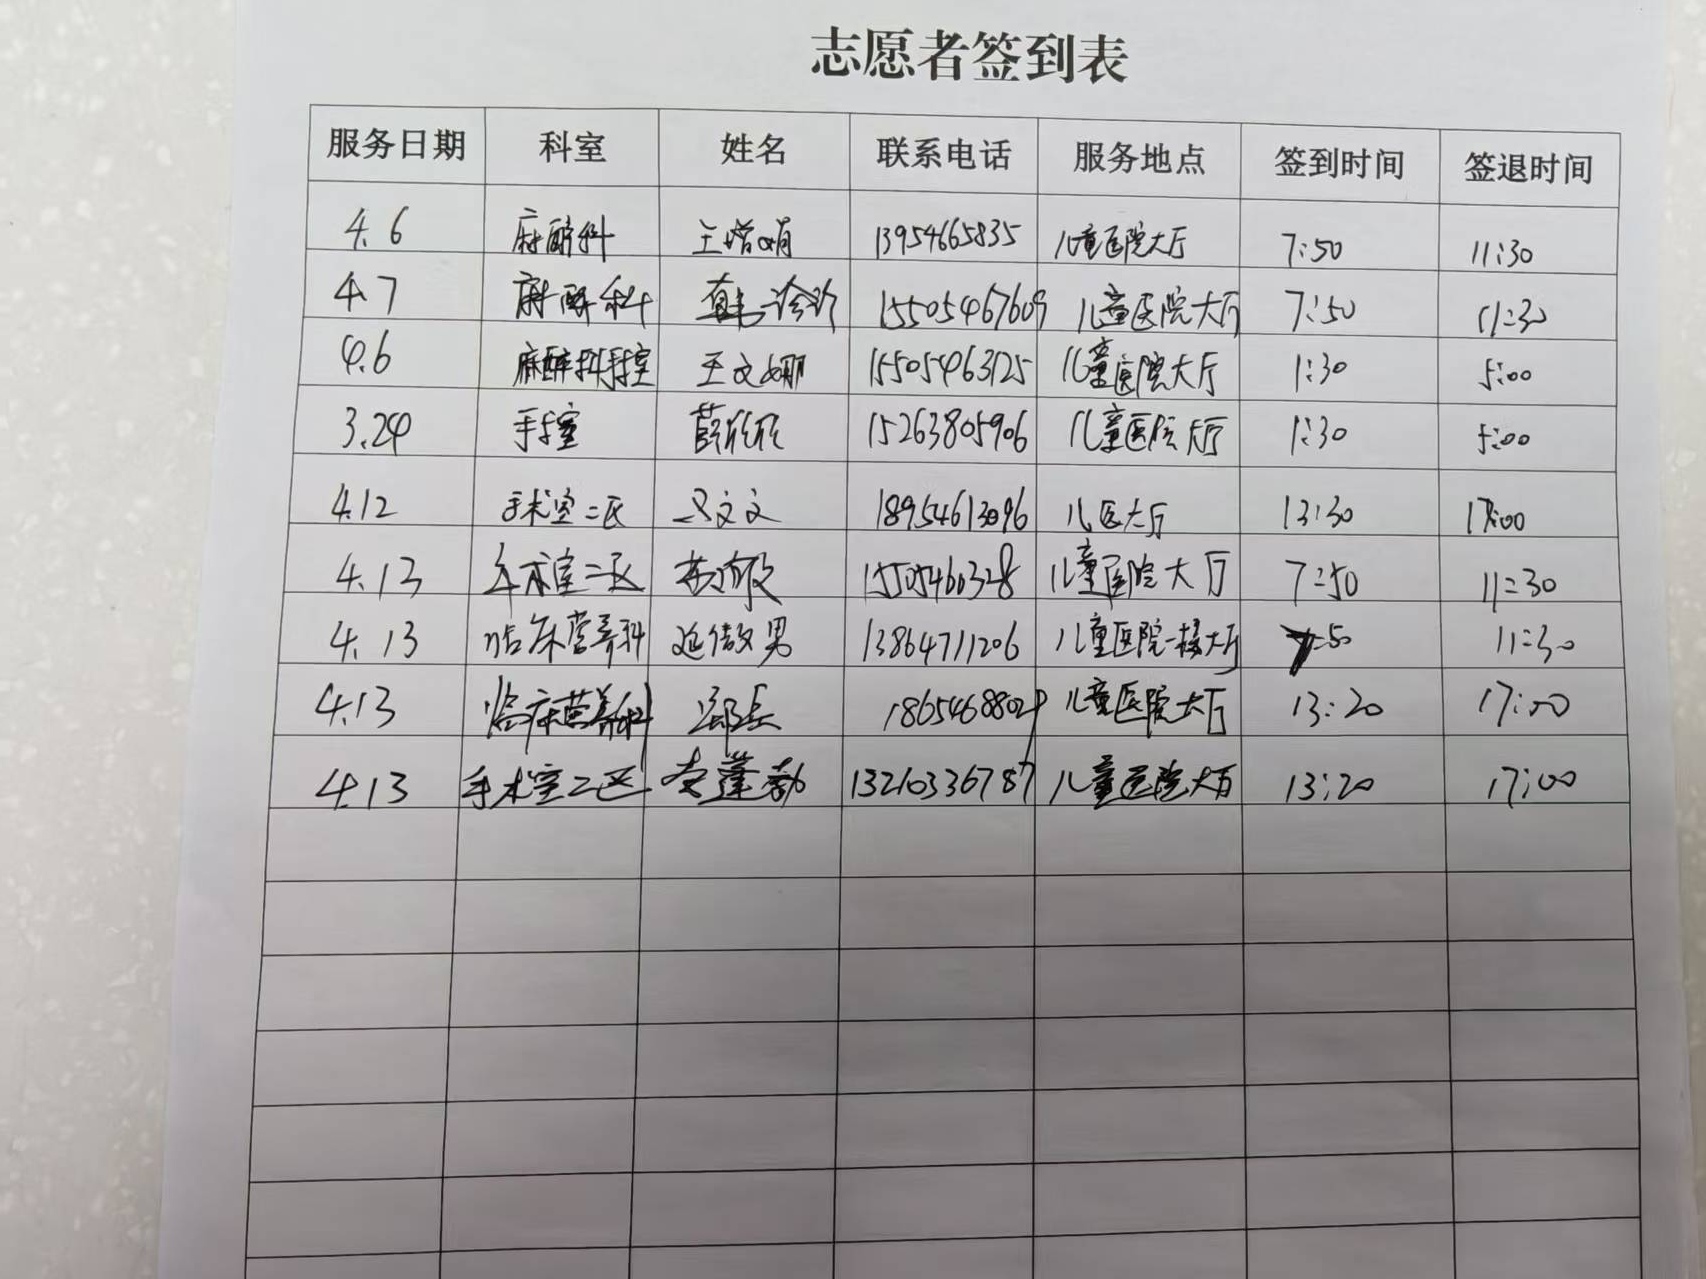 志愿者签到表
服务日期 科室 姓名 联系电话 服务地点 签到时间 签退时间
4.6 麻醉科 13954665835 儿童医院大厅 7:50 11:30
4.7 麻醉科 15505467609 儿童医院大厅 7:50 11:30
4.6 麻醉科手术室 王文娜 15505463125 儿童医院大厅 1:30 5:00
3.24 手术室 薛欣欣 15263805906 儿童医院大厅 1:30 5:00
4.12 手术室二区 文文 18954613096 儿医大厅 13:30 17:00
4.13 手术室二区 15505460328 儿童医院大厅 7:50 11:30
4.13 临床营养科 13864711206 儿童医院一楼大厅 7:50 11:30
4.13 临床营养科 18654688029 儿童医院大厅 13:20 17:00
4.13 手术室二区 李蓬勃 13210336787 儿童医院大厅 13:20 17:00